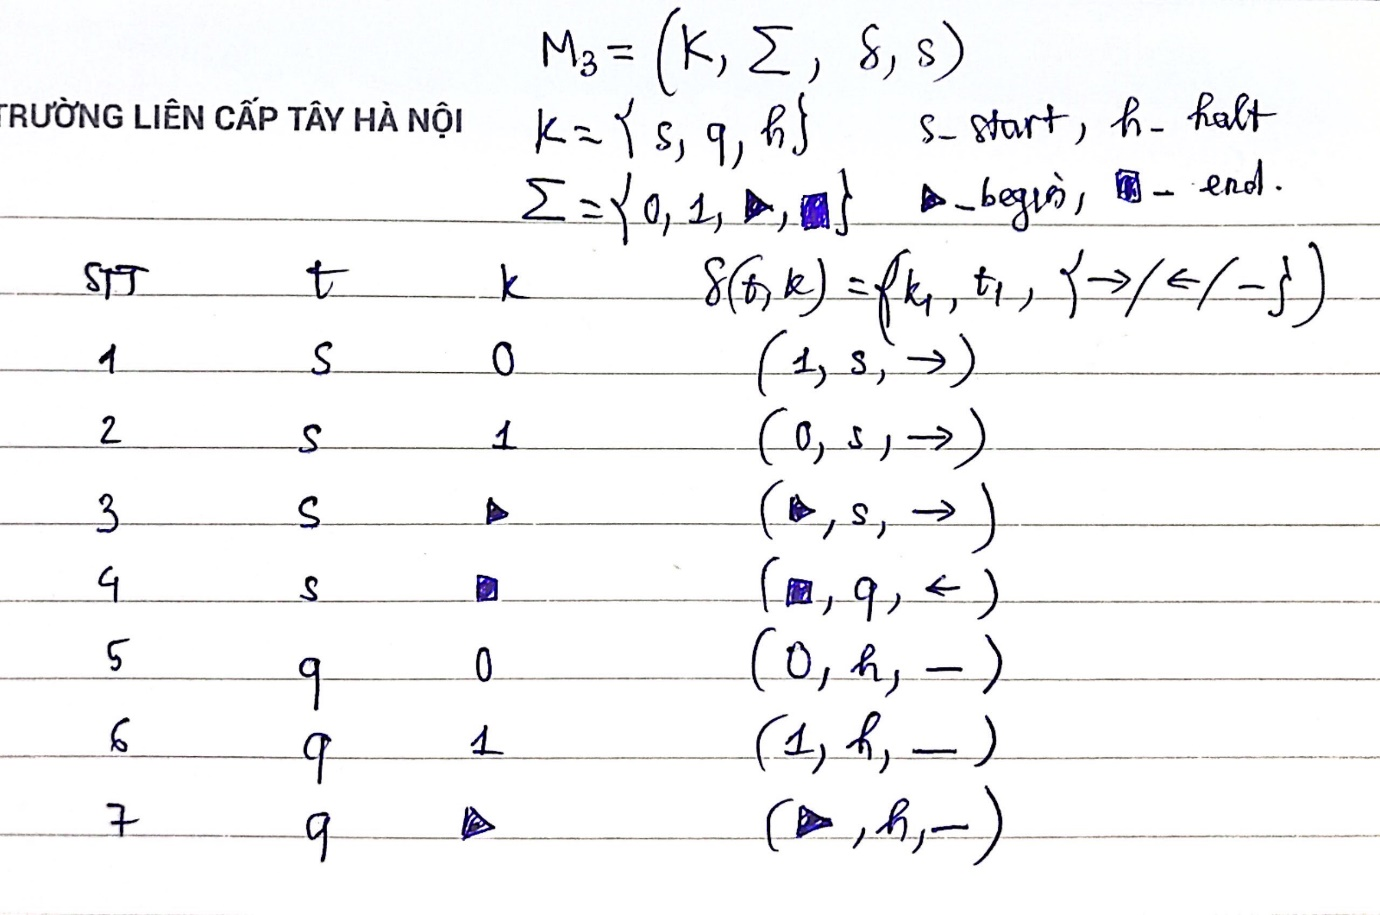 M₃ = (K, Σ, δ, s)
TRƯỜNG LIÊN CẤP TÂY HÀ NỘI
K = { s, q, h} s_ start, h_ halt
Σ = {0, 1, ▶, ■} ▶_begin, ■_ end.
STT t k δ(t, k) = (k₁, t₁, {→/←/−})
1 s 0 (1, s, →)
2 s 1 (0, s, →)
3 s ▶ (▶, s, →)
4 s ■ (■, q, ←)
5 q 0 (0, h, −)
6 q 1 (1, h, −)
7 q ▶ (▶, h, −)